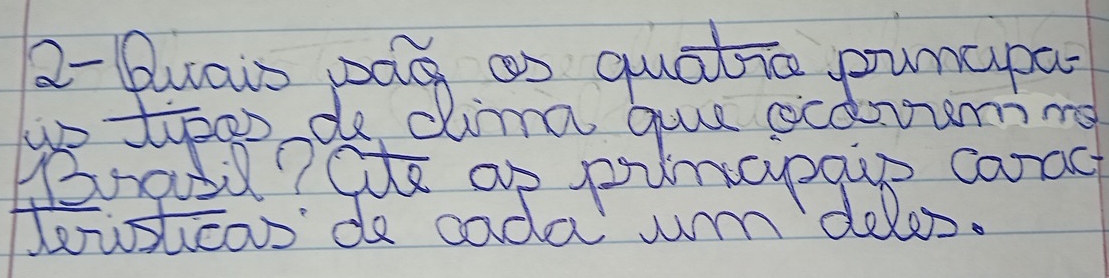 2- Quais são os quatro principa-
is tipos de clima que ocorrem no
Brasil? Cite as principais carac-
terísticas de cada um deles.